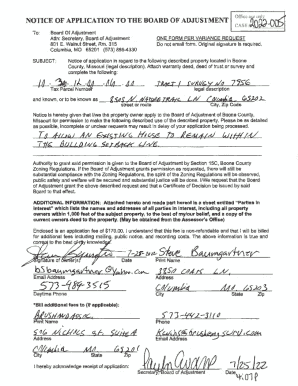 NOTICE OF APPLICATION TO THE BOARD OF ADJUSTMENT
Office use only
CASE 2022-005
To: Board Of Adjustment
Attn: Secretary, Board of Adjustment
801 E. Walnut Street, Rm. 315
Columbia, MO 65201 (573) 886-4330
ONE FORM PER VARIANCE REQUEST
Do not email form. Original signature is required.
SUBJECT: Notice of application in regard to the following described property located in Boone
County, Missouri (legal description). Attach warranty deed, deed of trust or survey and
complete the following:
TRACT 1 SURVEY NO 7956
Tax Parcel Number legal description
and known, or to be known as 8505 N
LN Columbia 65202
street or route City, Zip Code
Notice is hereby given that I/we the property owner apply to the Board of Adjustment in Boone County,
Missouri for permission to make the following described use of the described property. Please be as detailed
as possible, incomplete or unclear requests may result in delay of your application being processed.
TO ALLOW AN EXISTING HOUSE TO REMAIN WITHIN
THE BUILDING SETBACK LINE.
Authority to grant said permission is given to the Board of Adjustment by Section 15C, Boone County
Zoning Regulations. If the Board of Adjustment grants permission as requested, there will still be
substantial compliance with the Zoning Regulations, the spirit of the Zoning Regulations will be observed,
public safety and welfare will be secured and substantial justice will be done. I/We request that the Board of
Adjustment grant the above described request and that a Certificate of Decision be issued by said
Board to that effect.
ADDITIONAL INFORMATION. Attached hereto and made part hereof is a sheet entitled "Parties in
Interest" which lists the names and addresses of all parties in interest, including all property
owners within 1,000 feet of the subject property, to the best of my/our belief, and a copy of the
current owners deed to the property. (May be obtained from the Assessor's Office)
Enclosed is an application fee of $170.00. I understand that this fee is non-refundable and that I will be billed
for additional fees including mailing, public notice, and recording costs. The above information is true and
correct to the best of my knowledge.
7-25-2022 Steve Baumgartner
Signature of owner(s) Date Print Name
bsbaumgartner@yahoo.com 3850 COATS LN.
Email Address Address
573-489-3515 Columbia MO. 65203
Daytime Phone City State Zip
*Bill additional form to (if applicable):
573-442-3110
Print Name Phone
506 NICHOLS ST. SUITE A
Address Email Address
Columbia MO 65201
City State Zip
I hereby acknowledge receipt of application:
7/25/22
Secretary, Board of Adjustment Date